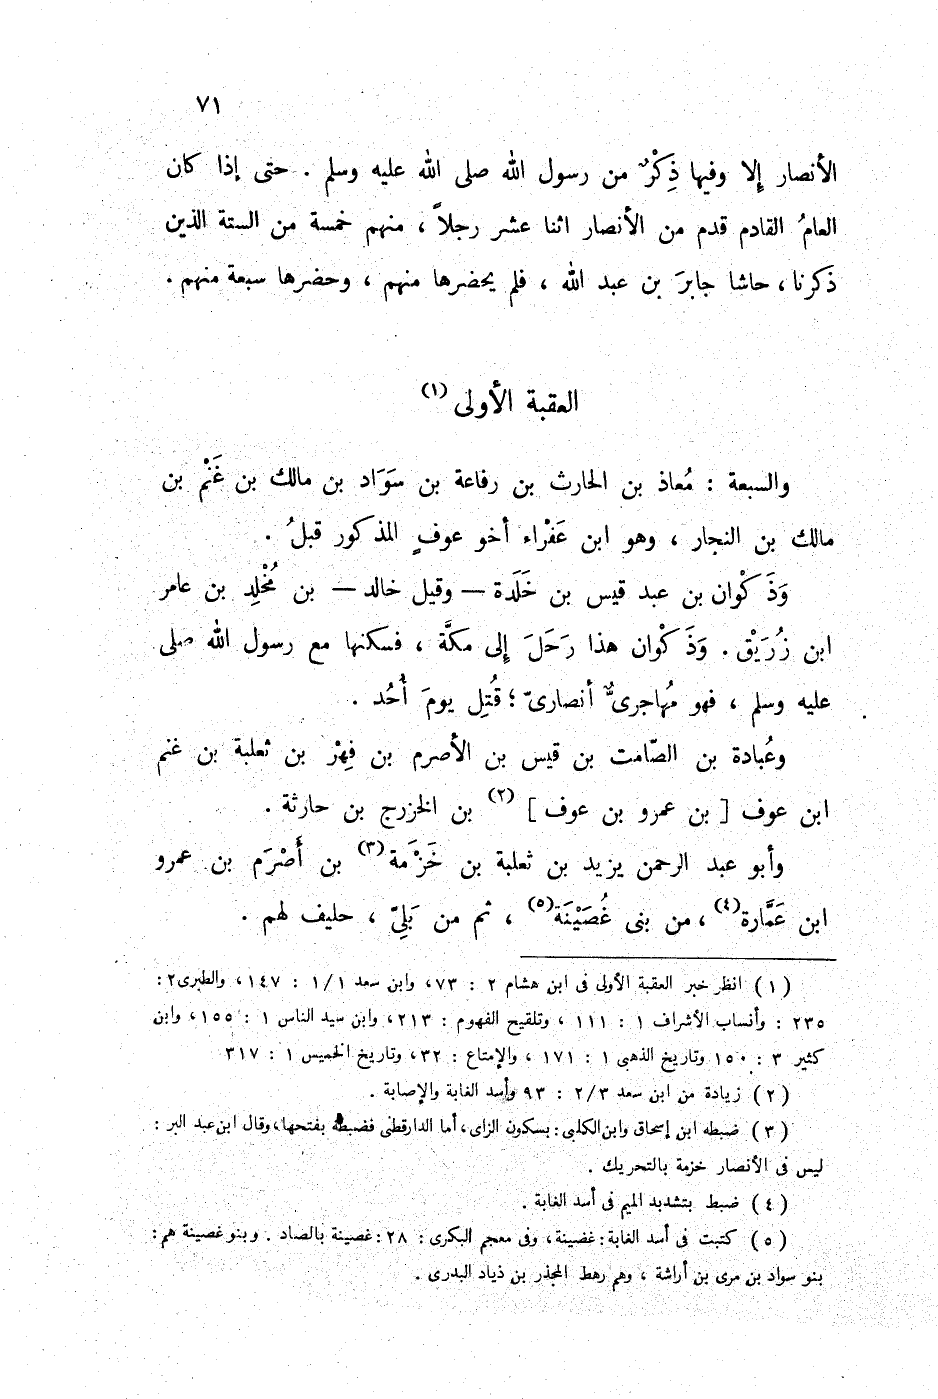 ٧١
الأنصار إلا وفيها ذِكْرٌ من رسول الله صلى الله عليه وسلم . حتى إذا كان
العامُ القادم قدم من الأنصار اثنا عشر رجلاً ، منهم خمسة من الستة الذين
ذكرنا ، حاشا جابرَ بن عبد الله ، فلم يحضرها منهم ، وحضرها سبعة منهم .
العقبة الأولى (١)
والسبعة : مُعاذ بن الحارث بن رفاعة بن سَوَاد بن مالك بن غَنْم بن
مالك بن النجار ، وهو ابن عَفْراء أخو عوفٍ المذكور قبلُ .
وَذَكْوان بن عبد قيس بن خَلَدة — وقيل خالد — بن مُخْلِد بن عامر
ابن زُرَيْق . وَذَكْوان هذا رَحَلَ إلى مكَّة ، فسكنها مع رسول الله صلى
عليه وسلم ، فهو مُهاجرىٌّ أنصارىّ ؛ قُتِل يومَ أُحُد .
وعُبادة بن الصّامت بن قيس بن الأصرم بن فِهْرِ بن ثعلبة بن غنم
ابن عوف [ بن عمرو بن عوف ] (٢) بن الخزرج بن حارثة .
وأبو عبد الرحمن يزيد بن ثعلبة بن خَزْمَة (٣) بن أَصْرَم بن عمرو
ابن عَمَّارة (٤) ، من بنى غُصَيْنَة (٥) ، ثم من بَلِىّ ، حليف لهم .
(١) انظر خبر العقبة الأولى فى ابن هشام ٢ : ٧٣ ، وابن سعد ١/١ : ١٤٧ ، والطبرى ٢ :
٢٣٥ : وأنساب الأشراف ١ : ١١١ ، وتلقيح الفهوم : ٢١٣ ، وابن سيد الناس ١ : ١٥٥ ، وابن
كثير ٣ : ١٥٠ وتاريخ الذهبى ١ : ١٧١ ، والإمتاع : ٣٢ ، وتاريخ الخميس ١ : ٣١٧
(٢) زيادة من ابن سعد ٢/٣ : ٩٣ وأسد الغابة والإصابة .
(٣) ضبطه ابن إسحاق وابن الكلبى : بسكون الزاى ، أما الدارقطنى فضبطه بفتحها ، وقال ابن عبد البر :
ليس فى الأنصار خزمة بالتحريك .
(٤) ضبط بتشديد الميم فى أسد الغابة .
(٥) كتبت فى أسد الغابة : غضينة ، وفى معجم البكرى : ٢٨ : غصينة بالصاد . وبنو غصينة هم :
بنو سواد بن مرى بن أراشة ، وهم رهط المجذر بن ذياد البدرى .